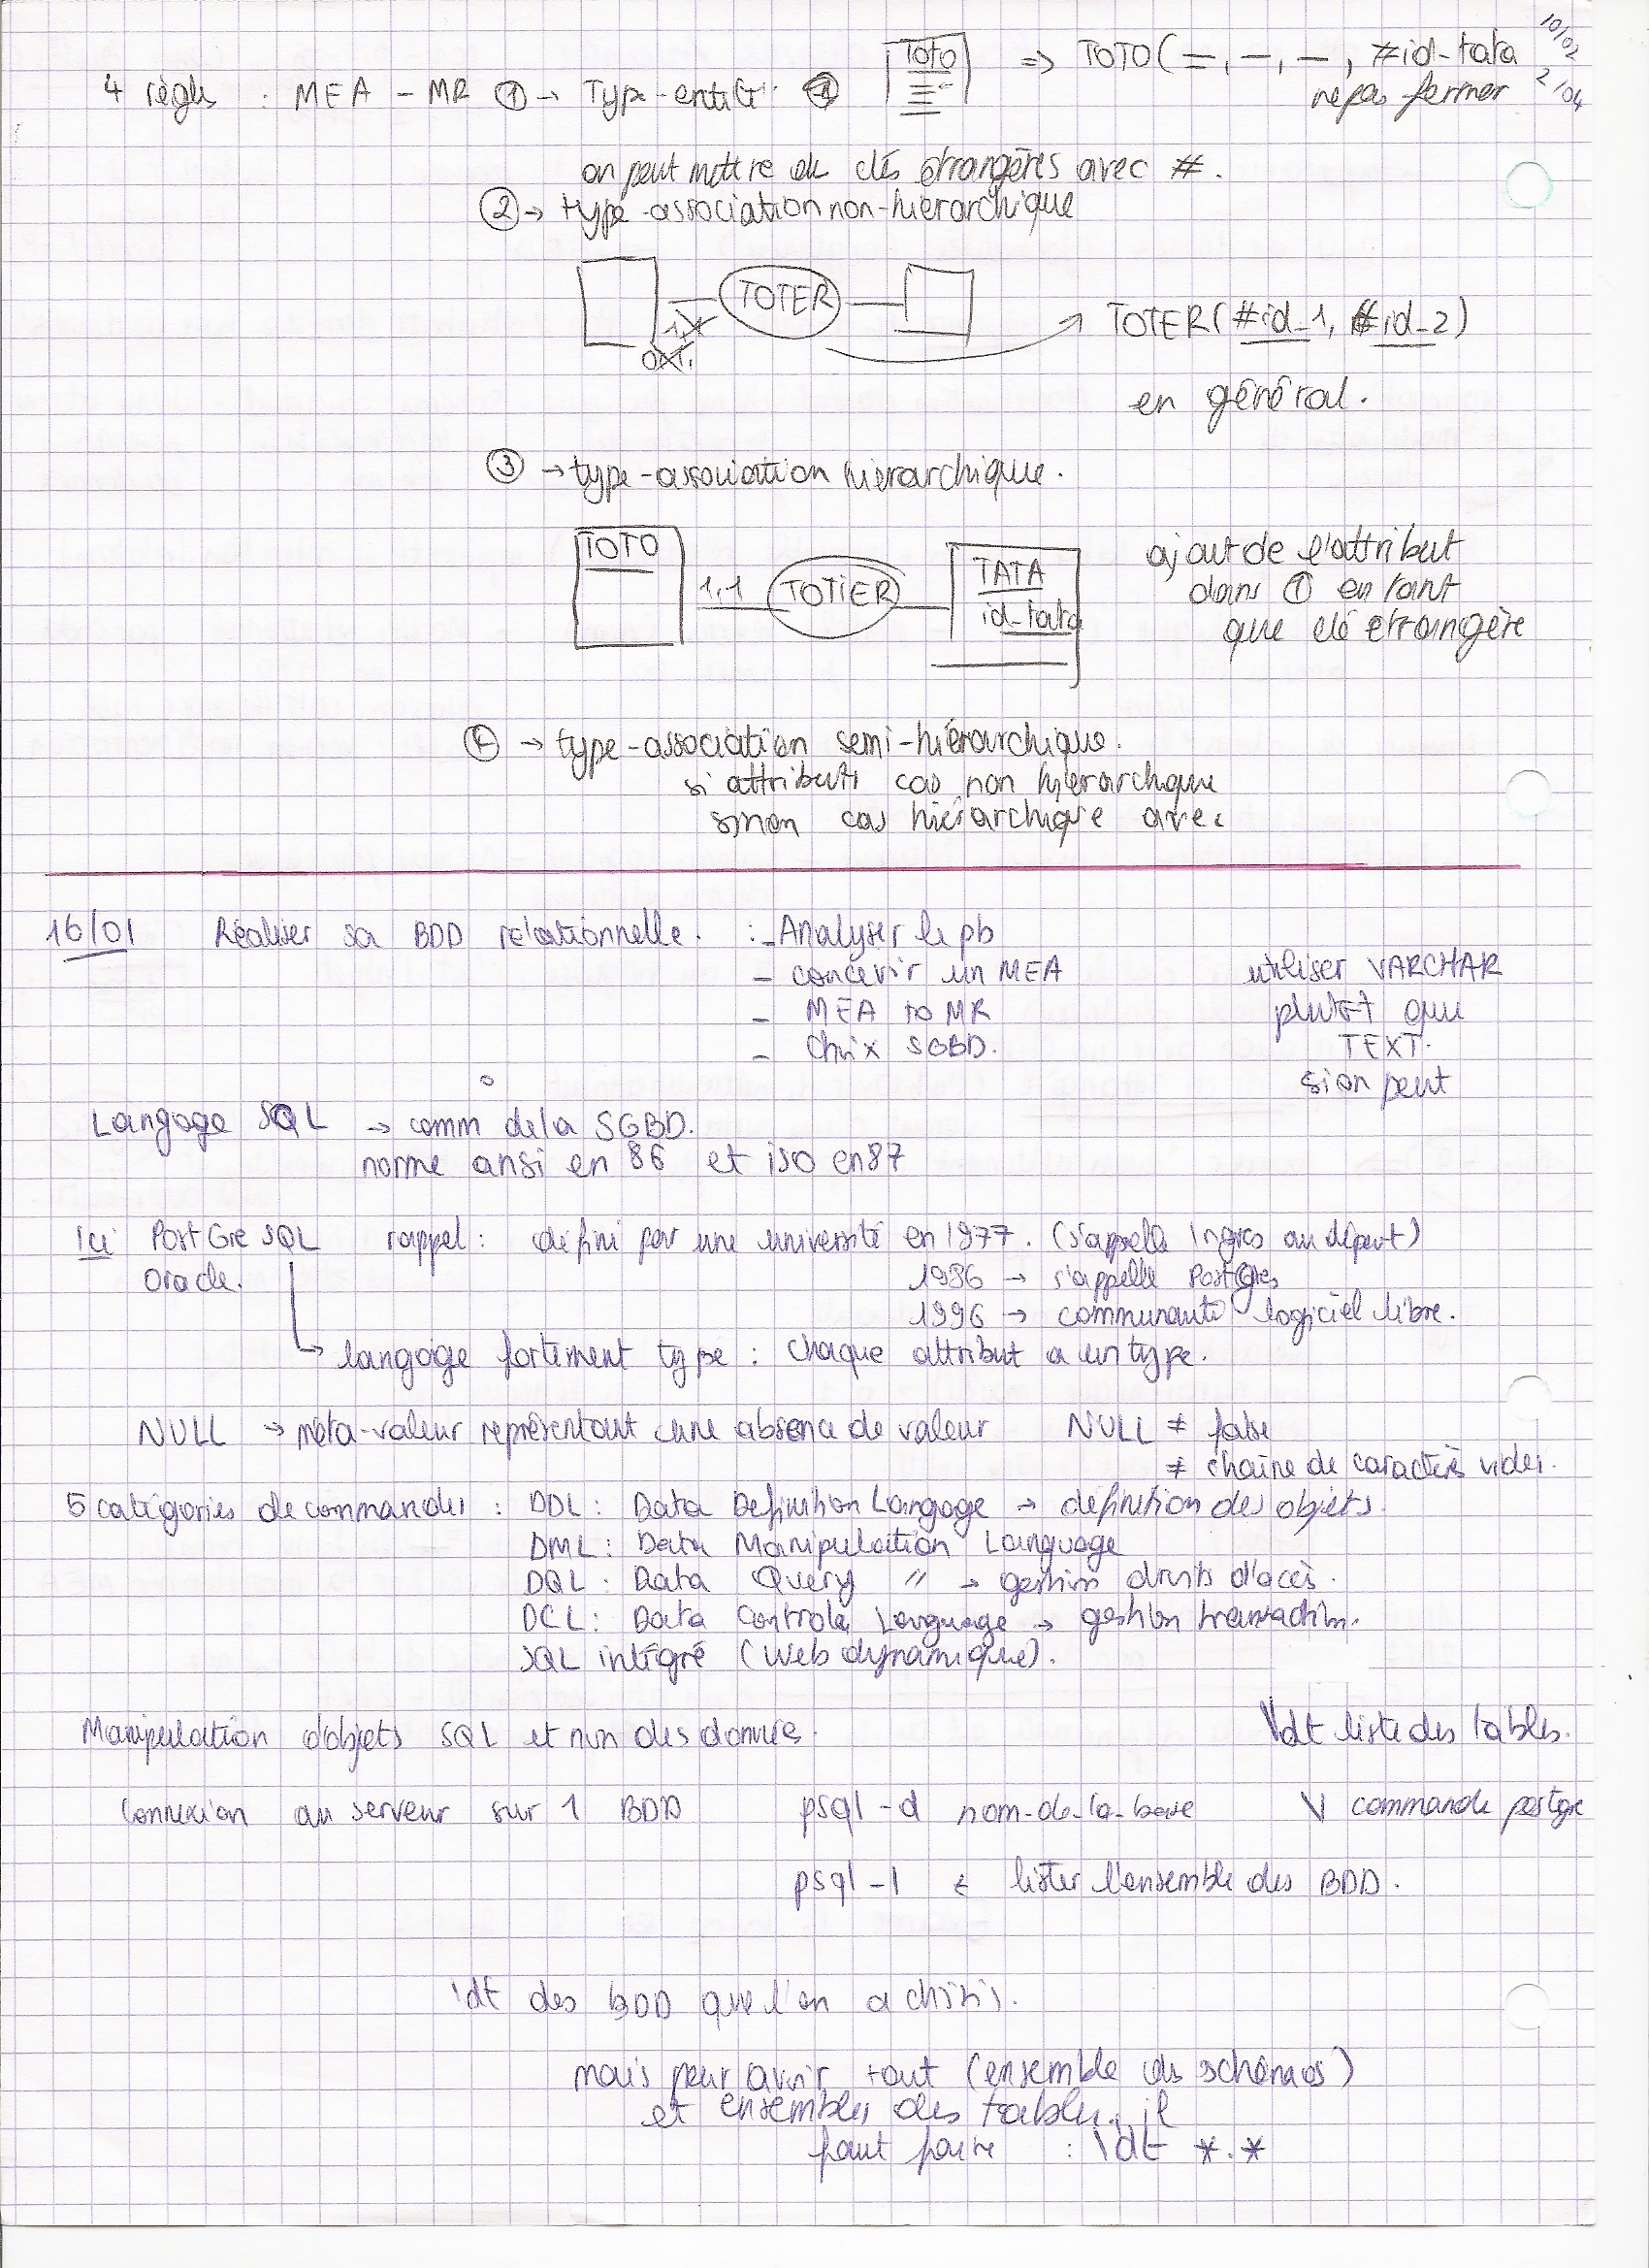 10/02
2/04
4 règles : MEA - MR ① → Type-entité ① TOTO => TOTO( =, -, -, #id-tata
ne pas fermer
on peut mettre des clés étrangères avec #.
② → type-association non-hiérarchique
TOTER
1,1
TOTER(#id_1, #id_2)
en général.
③ → type-association hiérarchique.
TOTO 1,1 TOTIER TATA
id-tata
ajout de l'attribut
dans ① en tant
que clé etrangère
④ → type-association semi-hiérarchique.
si attributs cas non hierarchique
sinon cas hiérarchique avec
16/01 Réaliser sa BDD relationnelle. : - Analyser le pb
- concevir un MEA
- MEA to MR
- Choix SGBD.
utiliser VARCHAR
plutôt que
TEXT.
si on peut
Langage SQL → comm de la SGBD.
norme ansi en 86 et iso en 87
Ici PostGreSQL rappel : défini par une université en 1977. (s'appelle Ingres au départ)
Oracle. 1986 → s'appelle PostGres
1996 → communauté logiciel libre.
↳ langage fortement type : chaque attribut a un type.
NULL → méta-valeur représentant une absence de valeur NULL ≠ false
≠ chaîne de caractères vides.
5 catégories de commandes : DDL : Data Definition Langage → définition des objets.
DML : Data Manipulation Language
DQL : Data Query " → gestion droits d'accès.
DCL : Data Controle Language → gestion transaction.
SQL intégré (Web dynamique).
Manipulation d'objets SQL et non des données. \dt liste des tables.
Connexion au serveur sur 1 BDD psql -d nom-de-la-base \ commande postgre
psql -l ← lister l'ensemble des BDD.
\dt des BDD que l'on a choisi.
mais pour avoir tout (ensemble des schémas)
et ensembles des tables, il
faut faire : \dt *.*